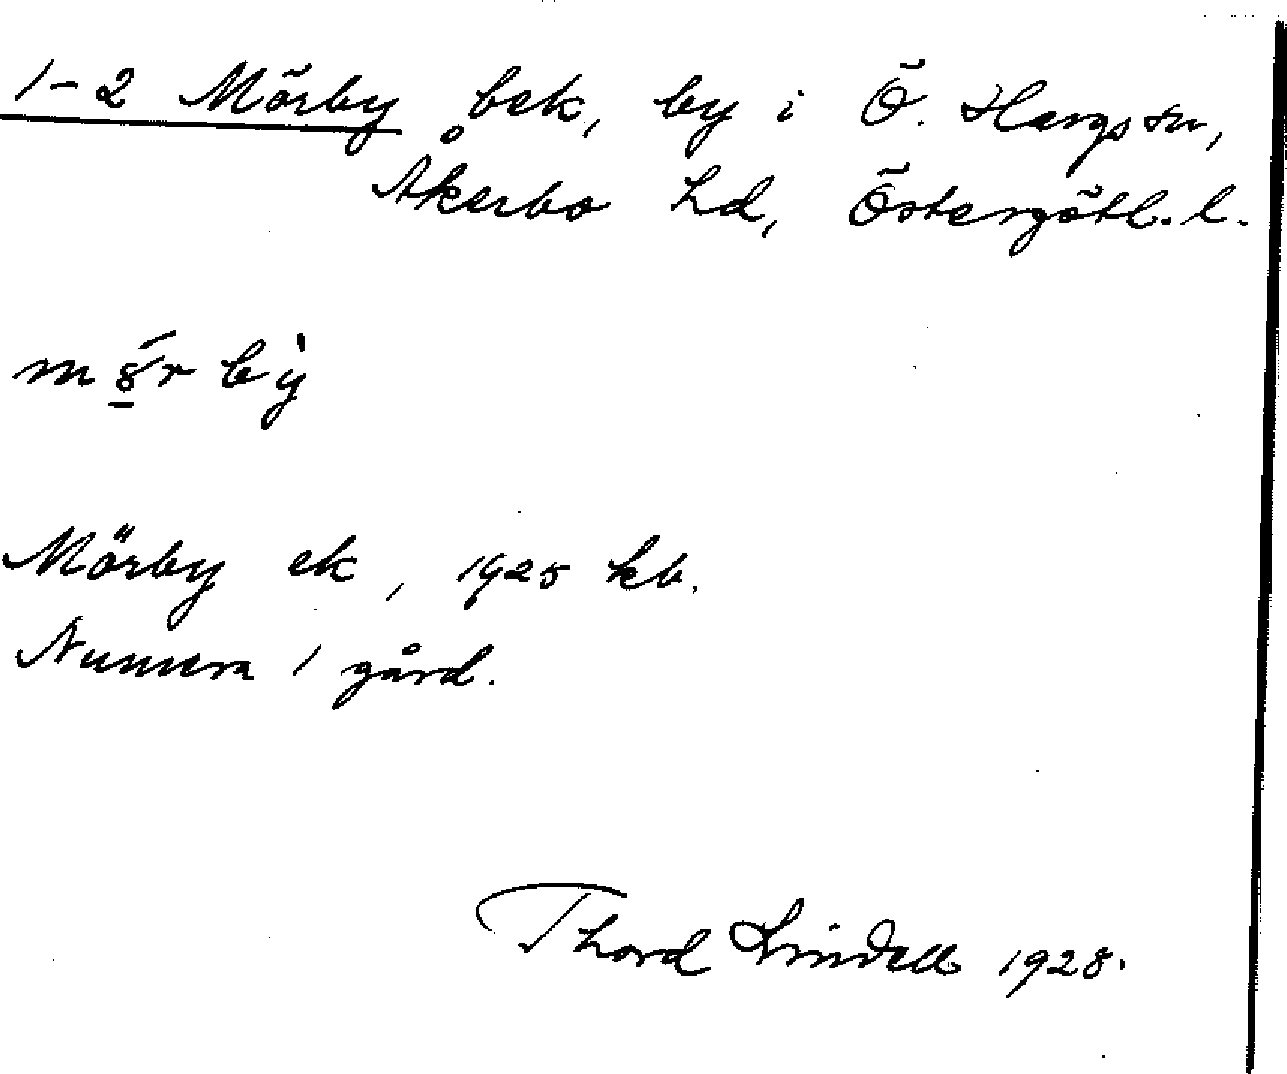 1-2 Mörby bek, by i Ö. Harg sn,
Åkerbo hd, Östergötl. l.
mörby
Mörby ek, 1925 kb.
Numera 1 gård.
Thord Lindell 1928.